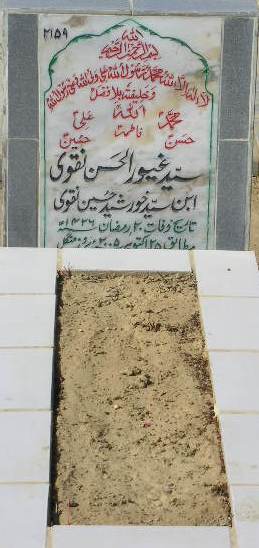 ۲۱۵۹
بسم اللہ الرحمن الرحیم
لا الہ الا اللہ محمد رسول اللہ علی ولی اللہ وصی رسول اللہ
و خلیفتہ بلا فصل
محمدؐ اللہ علیؑ
حسن فاطمہ حسین
سید غیور الحسن نقوی
ابن سید خورشید حسین نقوی
تاریخ وفات ۲۰ رمضان ۱۴۲۶ھ
مطابق ۲۵ اکتوبر ۲۰۰۵ء بروز منگل